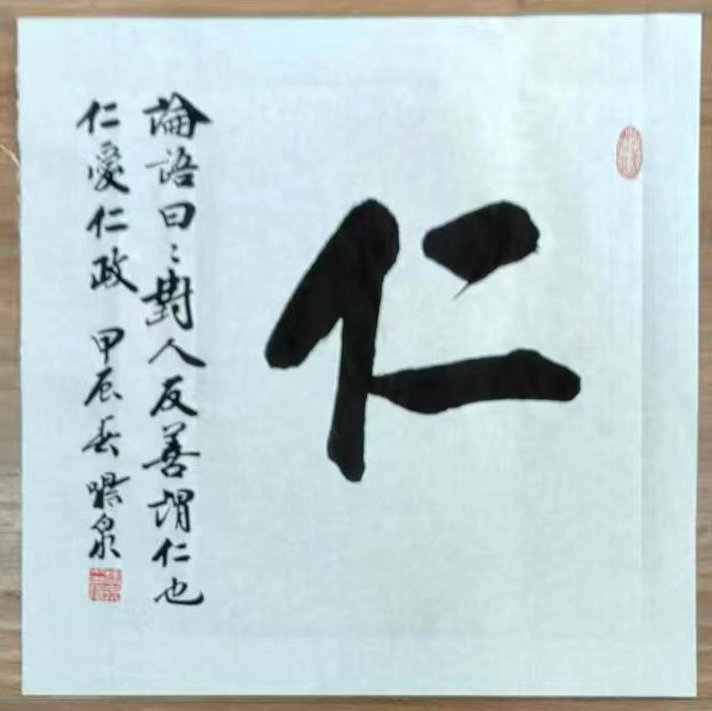 仁
論語曰:對人友善謂仁也
仁愛仁政 甲辰春 泉